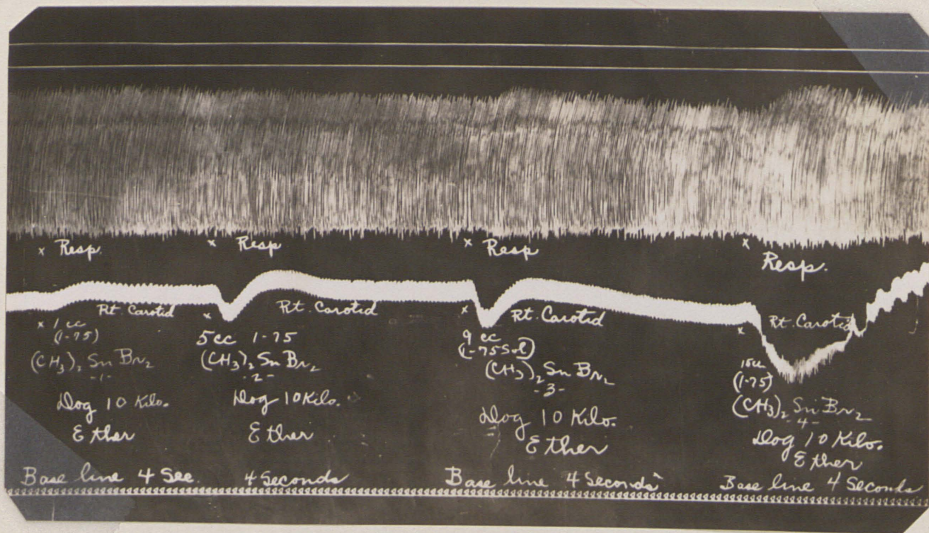 x Resp.
x Resp
x Resp
x Resp.
Rt. Carotid
x 1 cc
(1-75)
(CH3)2 Sn Br2
-1-
Dog 10 Kilo.
Ether
Base line 4 Sec.
x Rt. Carotid
5cc 1-75
(CH3)2 Sn Br2
-2-
Dog 10 Kilo.
Ether
4 Seconds
x Rt. Carotid
9 cc
(1-75 Sol)
(CH3)2 Sn Br2
-3-
Dog 10 Kilo.
Ether
Base line 4 Seconds
x Rt. Carotid
15cc
(1-75)
(CH3)2 Sn Br2
-4-
Dog 10 Kilo.
Ether
Base line 4 Seconds